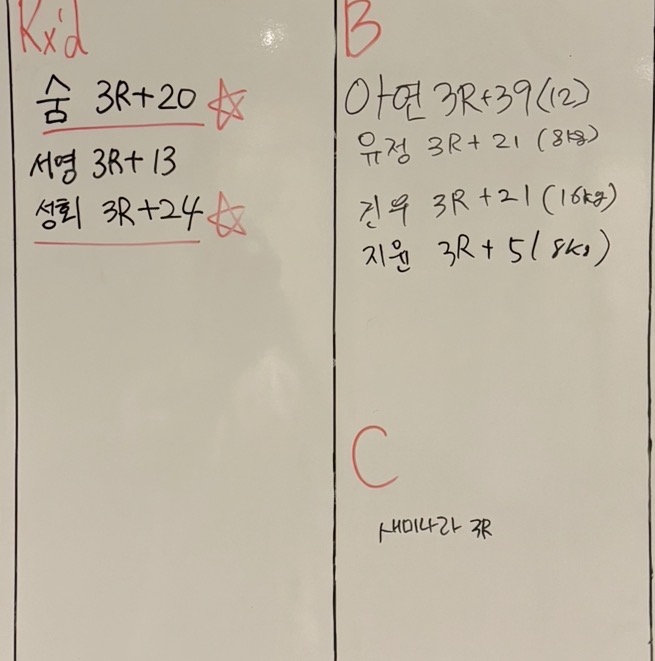 Rx'd
숨 3R+20
서영 3R+13
성희 3R+24
B
아연 3R+39(12)
유정 3R+21 (8kg)
진우 3R+21(16kg)
지원 3R+5(8kg)
C
새미나라 3R